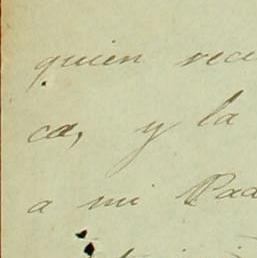 quien rece
ca, y la
a mi Pad